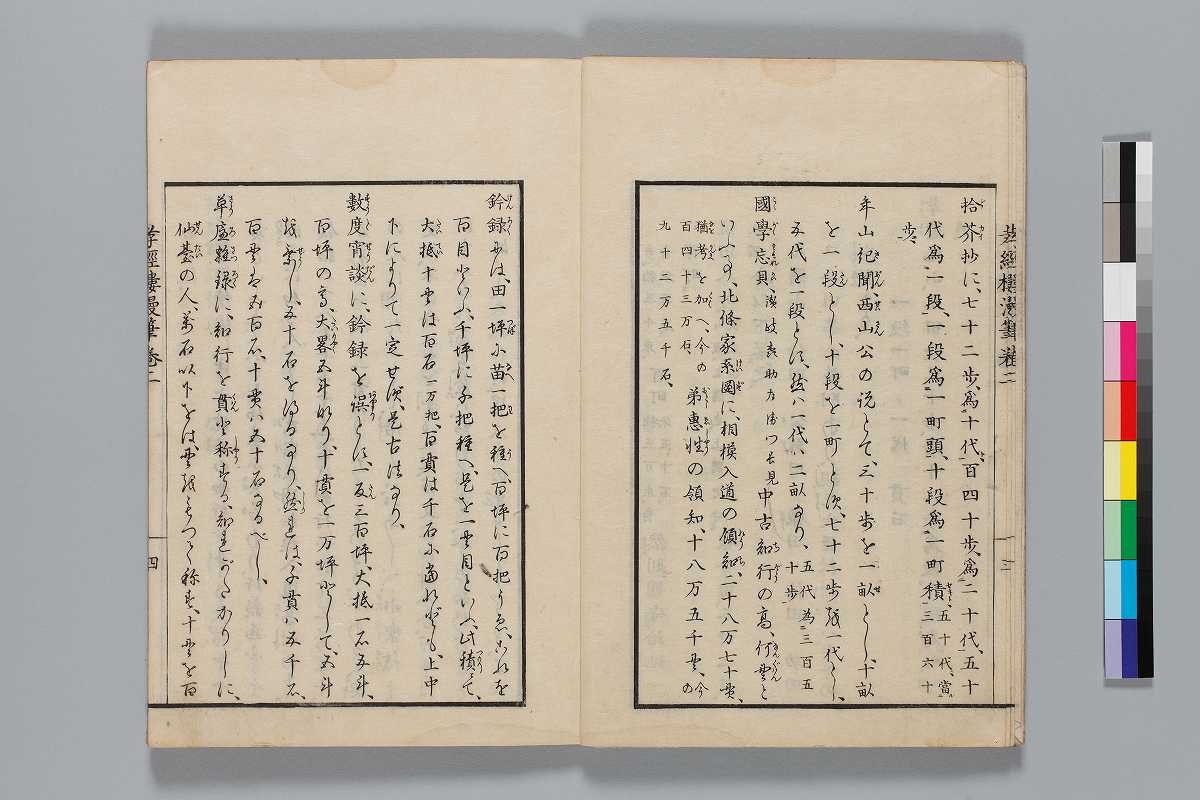 拾芥抄に、七十二歩、爲十代、百四十歩、爲二十代、五十
代爲一段、一段爲一町頭、十段爲一町積、五十代、當三百六十
歩、
年山紀聞、西山公の説とて、三十歩を一畝とし、十畝
を一段とし、十段を一町とす、七十二歩を一代とし、
五代を一段とす、然ハ一代ハ二畝なり、五代為三百五十歩
國學忘貝、中古知行の高、何貫と
いふは、北條家系圖に、相模入道の領知、二十八万七十貫、
猶考を加へ、今の百四十三万石、弟惠性の領知、十八万五千貫、今の
九十二万五千石、
孝經樓漫筆卷二
三
鈐録には、田一坪に苗一把を種へ、百坪に百把うゑ、これを
百目といふ、千坪に千把種へ、是を一貫目といふ、此積にて、
大抵十貫は百石一万把、百貫は千石に當れども、上中
下によりて一定せず、是古法なり、
數度宵談に、鈐録を誤とす、一反三百坪、大抵一石五斗、
百坪の高、大畧五斗なり、十貫を一万坪として、五斗
を乘し、五十石を得るなり、然れは、千貫ハ五千石、
百貫は五百石、十貫ハ五十石なるべし、
草廬雜録に、知行を貫と称する、知れがたかりしに、
仙臺の人、万石以下をは、貫をもつて称す、十貫を百
孝經樓漫筆卷二
四